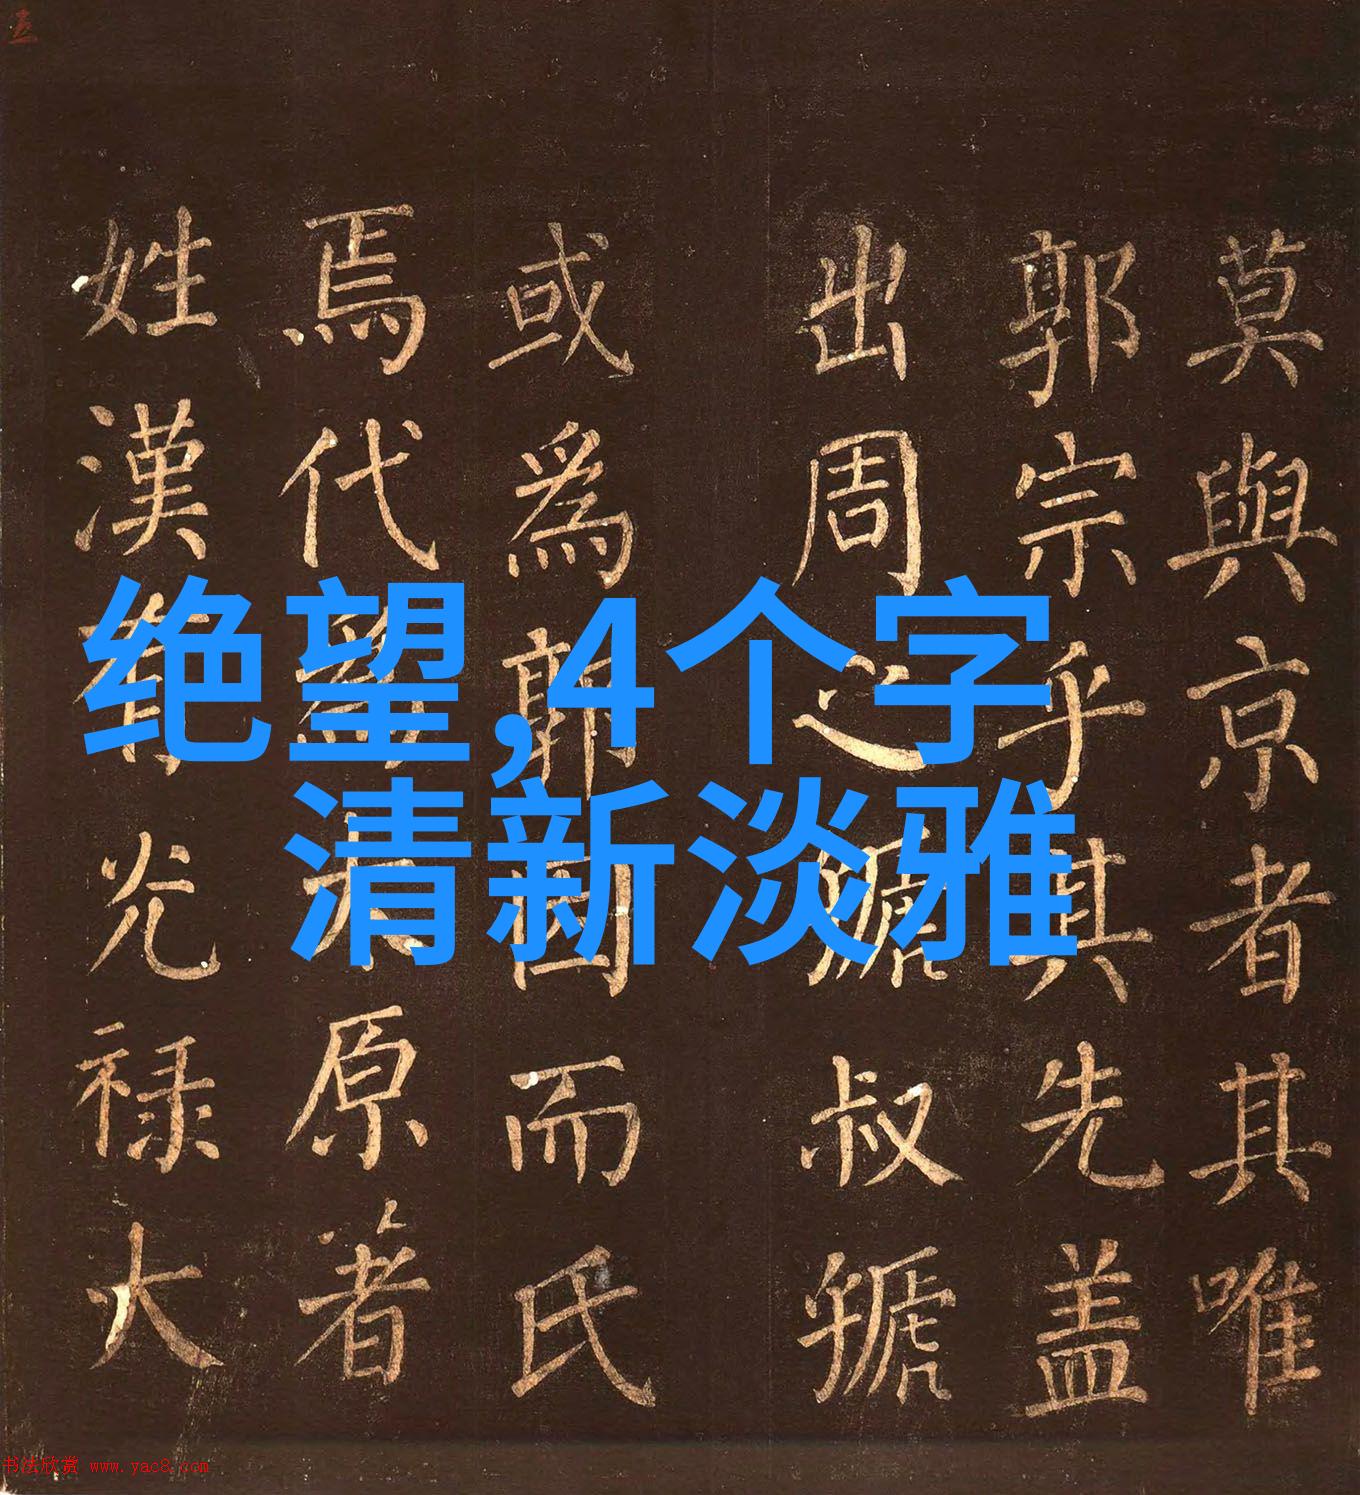 莫與京者其唯
郭宗乎其先盖
出周之虢叔虢
或爲郭因而氏
焉代爲太原著
姓漢有光禄大
绝望,4个字
清新淡雅
书法欣赏 www.yac8.com